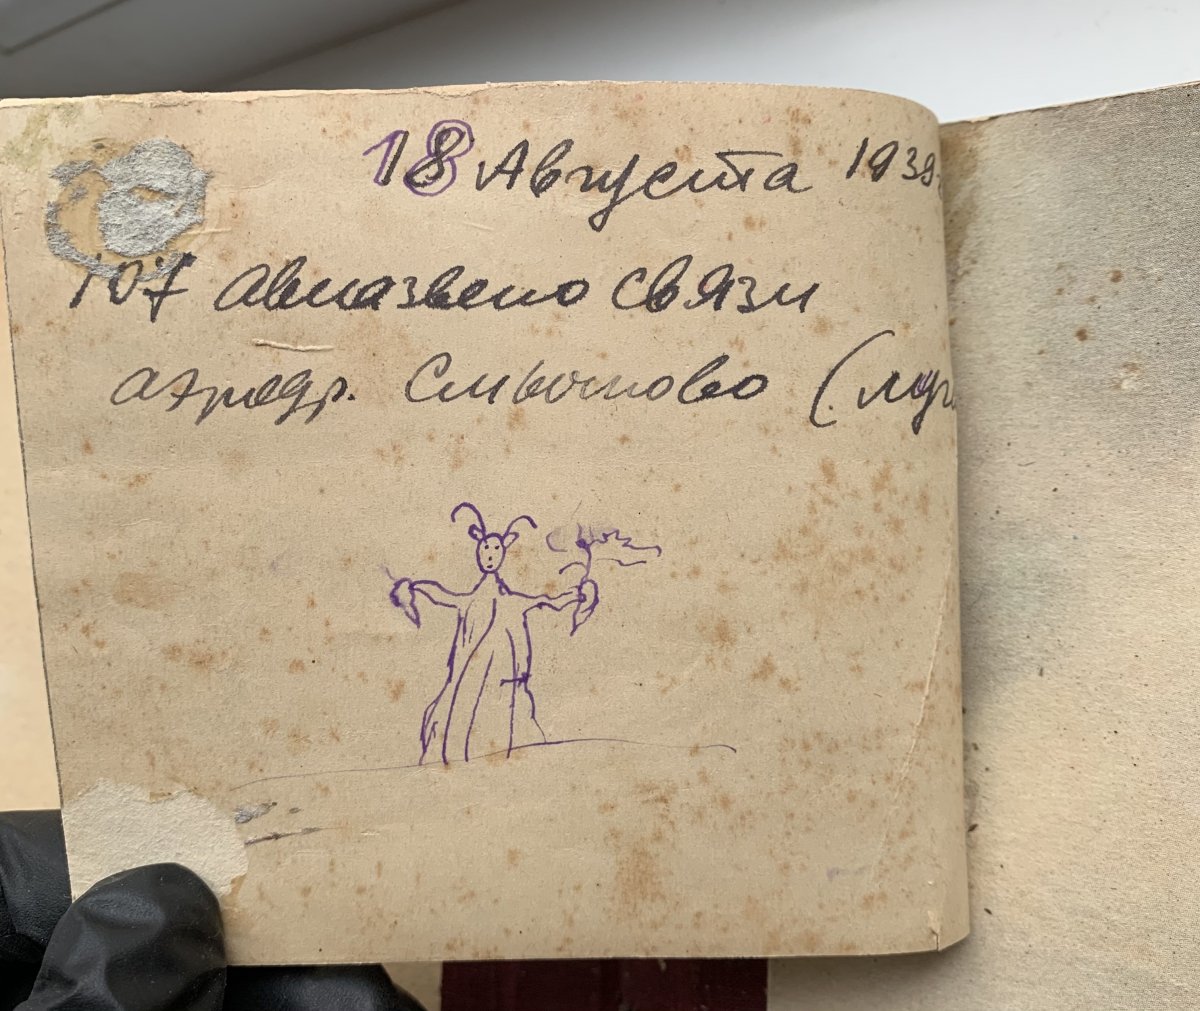 18 Августа 1939
107 авиазвено связи
аэродр. Смычково (луг